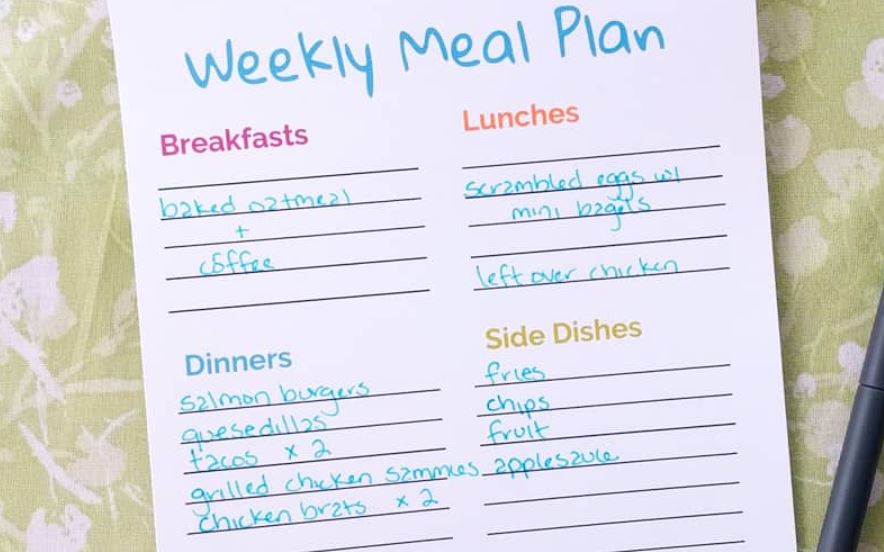 Weekly Meal Plan
Breakfasts
baked oatmeal
+
coffee
Lunches
scrambled eggs w/
mini bagels
left over chicken
Dinners
salmon burgers
quesedillas
tacos x 2
grilled chicken sammies
chicken brats x 2
Side Dishes
fries
chips
fruit
applesauce